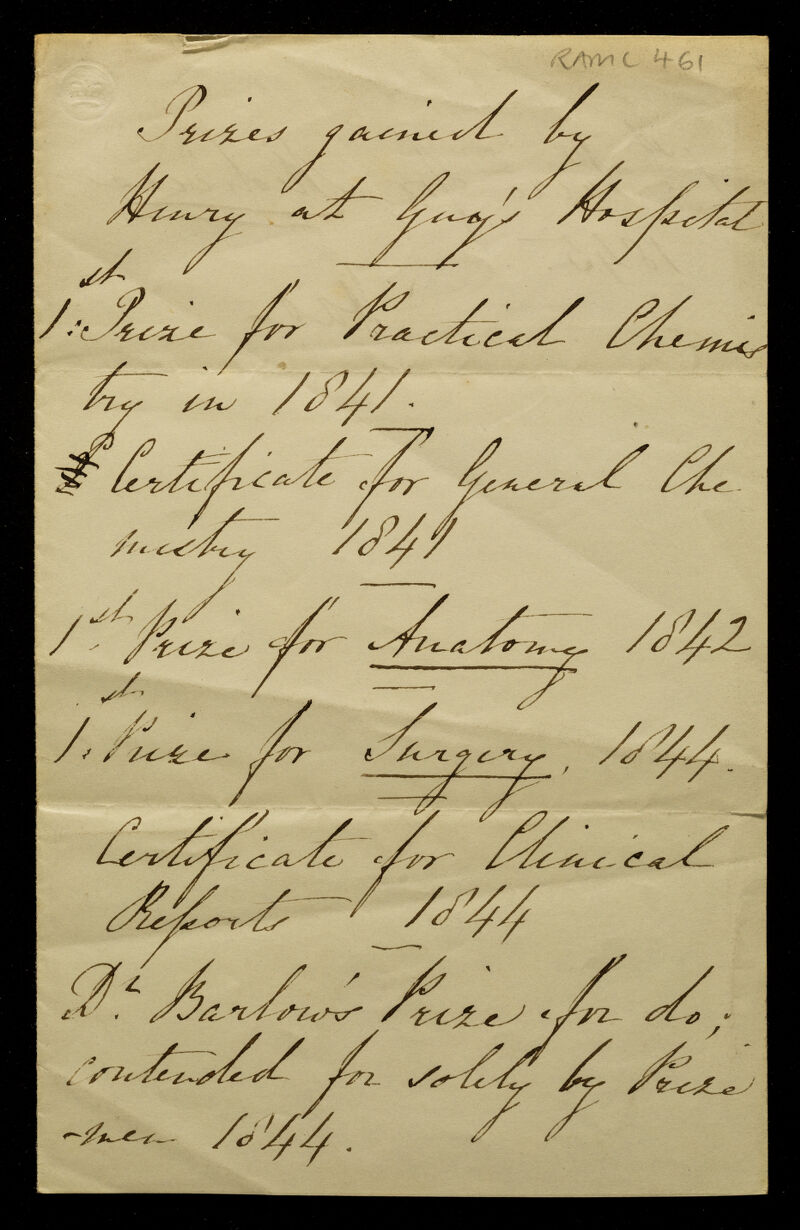 RAMC 461
Prizes gained by
Henry at Guy's Hospital
1st Prize for Practical Chemis
try in 1841.
Certificate for General Che
mistry 1841
1st Prize for Anatomy 1842
1st Prize for Surgery, 1844.
Certificate for Clinical
Reports 1844
Dr. Barlow's Prize for do;
contended for solely by Prize
-men 1844.